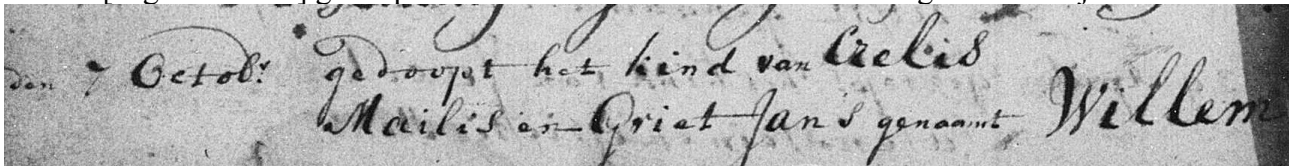 den 7 Octobr. gedoopt het kind van Crelis
Mailis en Griet Jans genaamt Willem